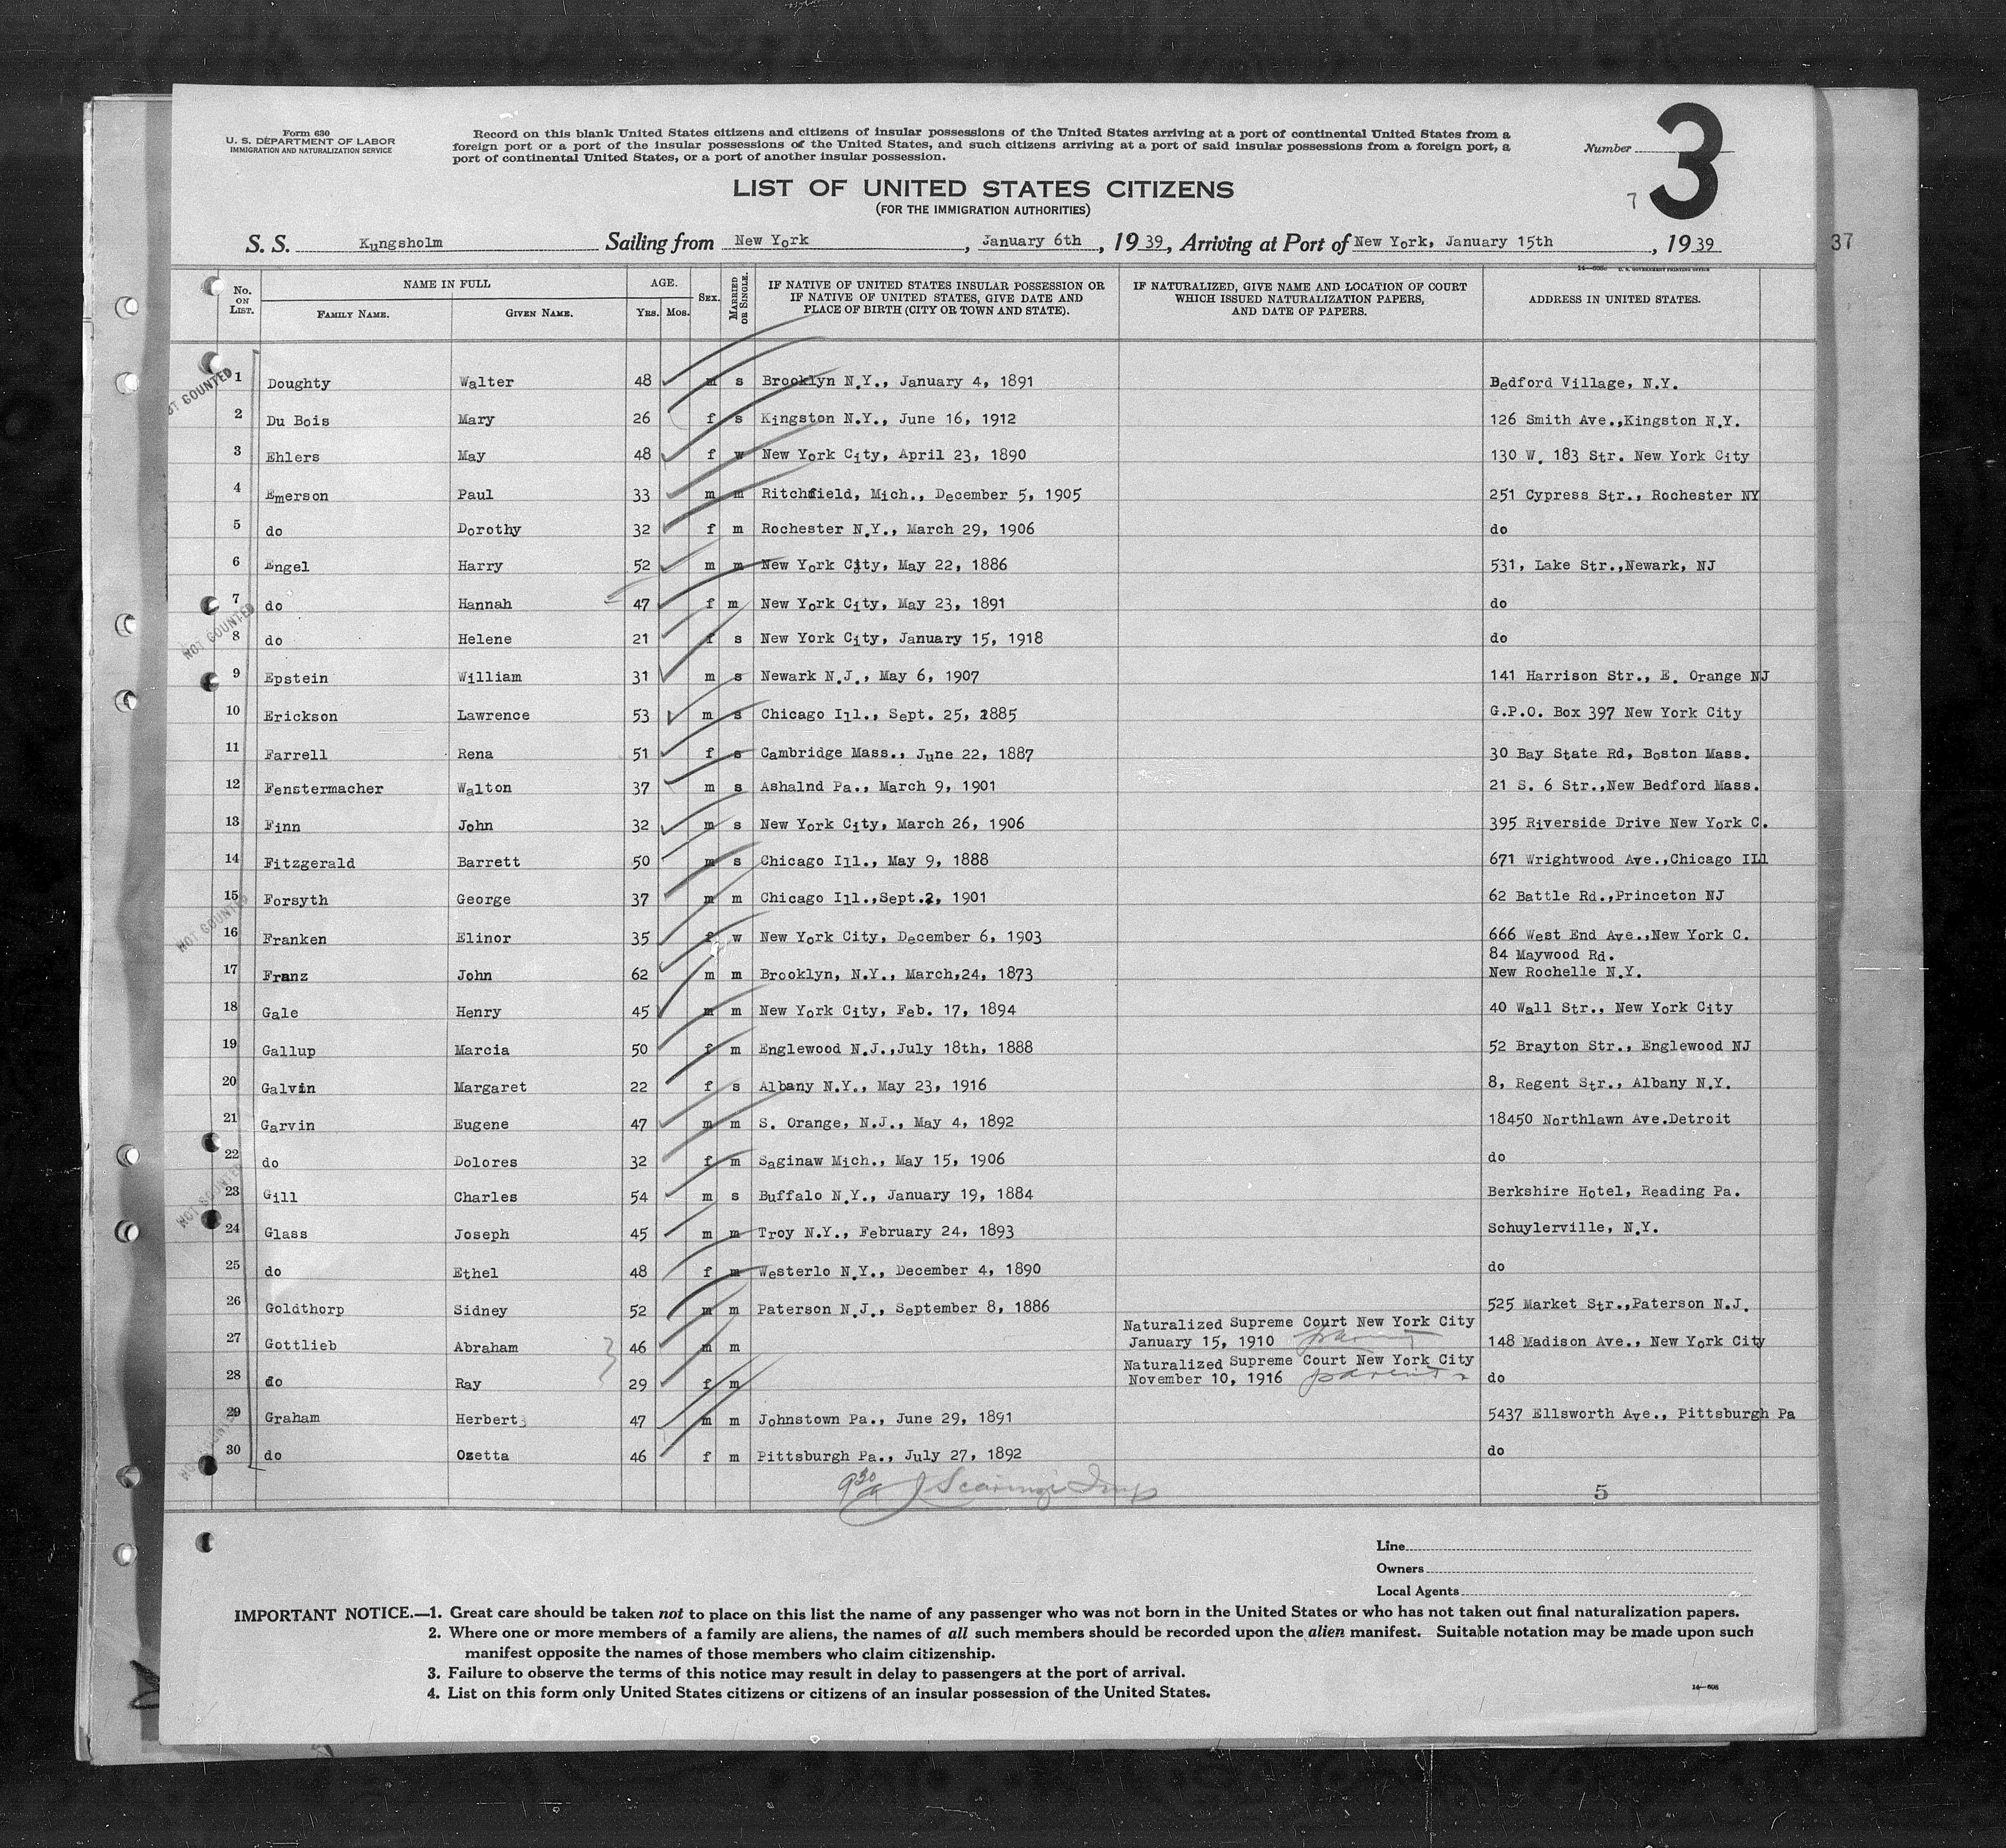 Form 630
U. S. DEPARTMENT OF LABOR
IMMIGRATION AND NATURALIZATION SERVICE
Record on this blank United States citizens and citizens of insular possessions of the United States arriving at a port of continental United States from a
foreign port or a port of the insular possessions of the United States, and such citizens arriving at a port of said insular possessions from a foreign port, a
port of continental United States, or a port of another insular possession.
Number 3
7
LIST OF UNITED STATES CITIZENS
(FOR THE IMMIGRATION AUTHORITIES)
S. S. Kungsholm Sailing from New York, January 6th, 1939, Arriving at Port of New York, January 15th, 1939
37
No. ON LIST. NAME IN FULL FAMILY NAME. GIVEN NAME. AGE. Yrs. Mos. SEX. MARRIED OR SINGLE. IF NATIVE OF UNITED STATES INSULAR POSSESSION OR IF NATIVE OF UNITED STATES, GIVE DATE AND PLACE OF BIRTH (CITY OR TOWN AND STATE). IF NATURALIZED, GIVE NAME AND LOCATION OF COURT WHICH ISSUED NATURALIZATION PAPERS, AND DATE OF PAPERS. ADDRESS IN UNITED STATES.
1 Doughty Walter 48 m s Brooklyn N.Y., January 4, 1891 Bedford Village, N.Y.
2 Du Bois Mary 26 f s Kingston N.Y., June 16, 1912 126 Smith Ave.,Kingston N.Y.
3 Ehlers May 48 f w New York City, April 23, 1890 130 W. 183 Str. New York City
4 Emerson Paul 33 m m Ritchfield, Mich., December 5, 1905 251 Cypress Str., Rochester NY
5 do Dorothy 32 f m Rochester N.Y., March 29, 1906 do
6 Engel Harry 52 m m New York City, May 22, 1886 531, Lake Str.,Newark, NJ
7 do Hannah 47 f m New York City, May 23, 1891 do
8 do Helene 21 f s New York City, January 15, 1918 do
9 Epstein William 31 m s Newark N.J., May 6, 1907 141 Harrison Str., E. Orange NJ
10 Erickson Lawrence 53 m s Chicago Ill., Sept. 25, 1885 G.P.O. Box 397 New York City
11 Farrell Rena 51 f s Cambridge Mass., June 22, 1887 30 Bay State Rd, Boston Mass.
12 Fenstermacher Walton 37 m s Ashalnd Pa., March 9, 1901 21 S. 6 Str.,New Bedford Mass.
13 Finn John 32 m s New York City, March 26, 1906 395 Riverside Drive New York C.
14 Fitzgerald Barrett 50 m s Chicago Ill., May 9, 1888 671 Wrightwood Ave.,Chicago Ill
15 Forsyth George 37 m m Chicago Ill.,Sept.2, 1901 62 Battle Rd.,Princeton NJ
16 Franken Elinor 35 f w New York City, December 6, 1903 666 West End Ave.,New York C.
84 Maywood Rd.
17 Franz John 62 m m Brooklyn, N.Y., March,24, 1873 New Rochelle N.Y.
18 Gale Henry 45 m m New York City, Feb. 17, 1894 40 Wall Str., New York City
19 Gallup Marcia 50 f m Englewood N.J.,July 18th, 1888 52 Brayton Str., Englewood NJ
20 Galvin Margaret 22 f s Albany N.Y., May 23, 1916 8, Regent Str., Albany N.Y.
21 Garvin Eugene 47 m m S. Orange, N.J., May 4, 1892 18450 Northlawn Ave.Detroit
22 do Dolores 32 f m Saginaw Mich., May 15, 1906 do
23 Gill Charles 54 m s Buffalo N.Y., January 19, 1884 Berkshire Hotel, Reading Pa.
24 Glass Joseph 45 m m Troy N.Y., February 24, 1893 Schuylerville, N.Y.
25 do Ethel 48 f m Westerlo N.Y., December 4, 1890 do
26 Goldthorp Sidney 52 m m Paterson N.J., September 8, 1886 525 Market Str.,Paterson N.J.
Naturalized Supreme Court New York City
27 Gottlieb Abraham 46 m m January 15, 1910 148 Madison Ave., New York City
Naturalized Supreme Court New York City
28 do Ray 29 f m November 10, 1916 parents do
29 Graham Herbert 47 m m Johnstown Pa., June 29, 1891 5437 Ellsworth Ave., Pittsburgh Pa
30 do Ozetta 46 f m Pittsburgh Pa., July 27, 1892 do
5
NOT COUNTED
NOT COUNTED
NOT COUNTED
NOT COUNTED
NOT COUNTED
Line
Owners
Local Agents
IMPORTANT NOTICE.—1. Great care should be taken not to place on this list the name of any passenger who was not born in the United States or who has not taken out final naturalization papers.
2. Where one or more members of a family are aliens, the names of all such members should be recorded upon the alien manifest. Suitable notation may be made upon such
manifest opposite the names of those members who claim citizenship.
3. Failure to observe the terms of this notice may result in delay to passengers at the port of arrival.
4. List on this form only United States citizens or citizens of an insular possession of the United States.
14—608